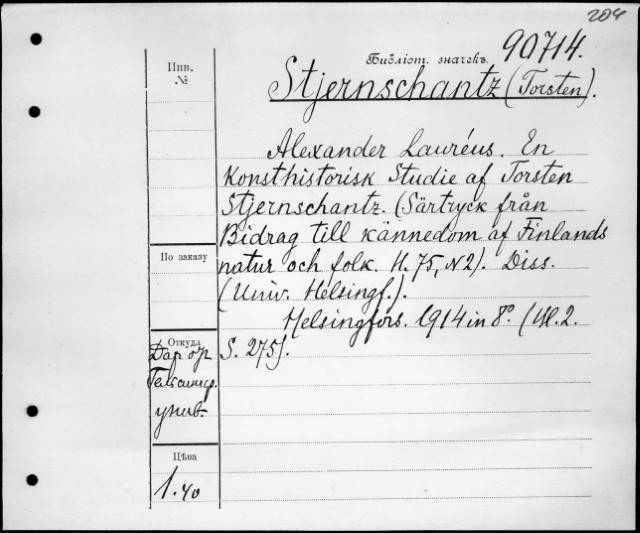 204
90714.
Библіот. значекъ.
Инв.
№
Stjernschantz (Torsten).
Alexander Lauréus. En
Konsthistorisk Studie af Torsten
Stjernschantz. (Särtryck från
Bidrag till kännedom af Finlands
natur och folk. H. 75, N2). Diss.
(Univ. Helsingf.).
Helsingfors. 1914 in 8°.
S. 275).
По заказу
Откуда
Даръ отъ
унив.
Цѣна
1.40